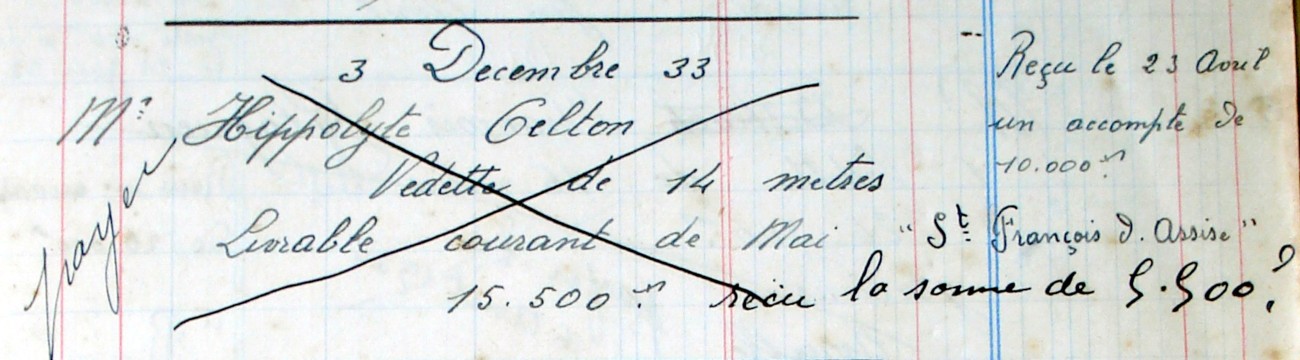 3 Decembre 33
Mr. Hippolyte Celton
Vedette de 14 metres
Livrable courant de Mai "St. François d. Assise"
15.500 frs reçu la somme de 5.500?
payer
Reçu le 23 Avril
un accompte de
10.000 frs